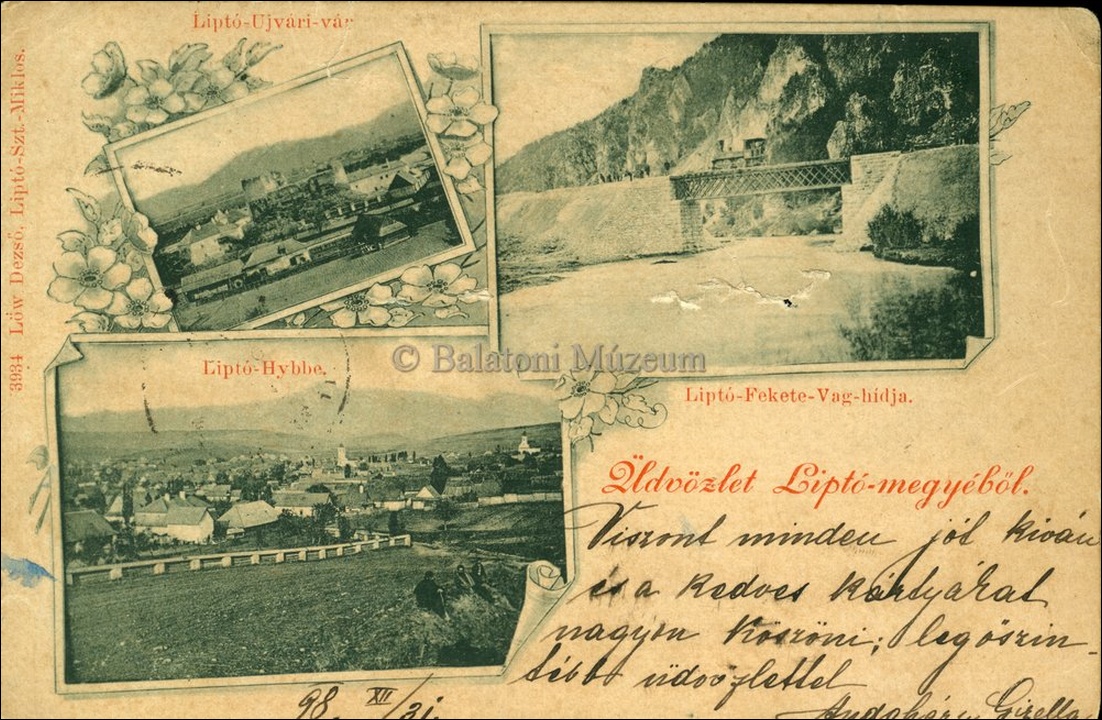 Liptó-Ujvári-vár
3934 Löw Dezső, Liptó-Szt.-Miklos.
© Balatoni Múzeum
Liptó-Hybbe.
Liptó-Fekete-Vag-hídja.
Üdvözlet Liptó-megyéből.
Viszont minden jót kiván
és a kedves kártyákat
nagyon köszöni; legőszin-
tébb üdvözlettel
Gizella
98. XII/31.